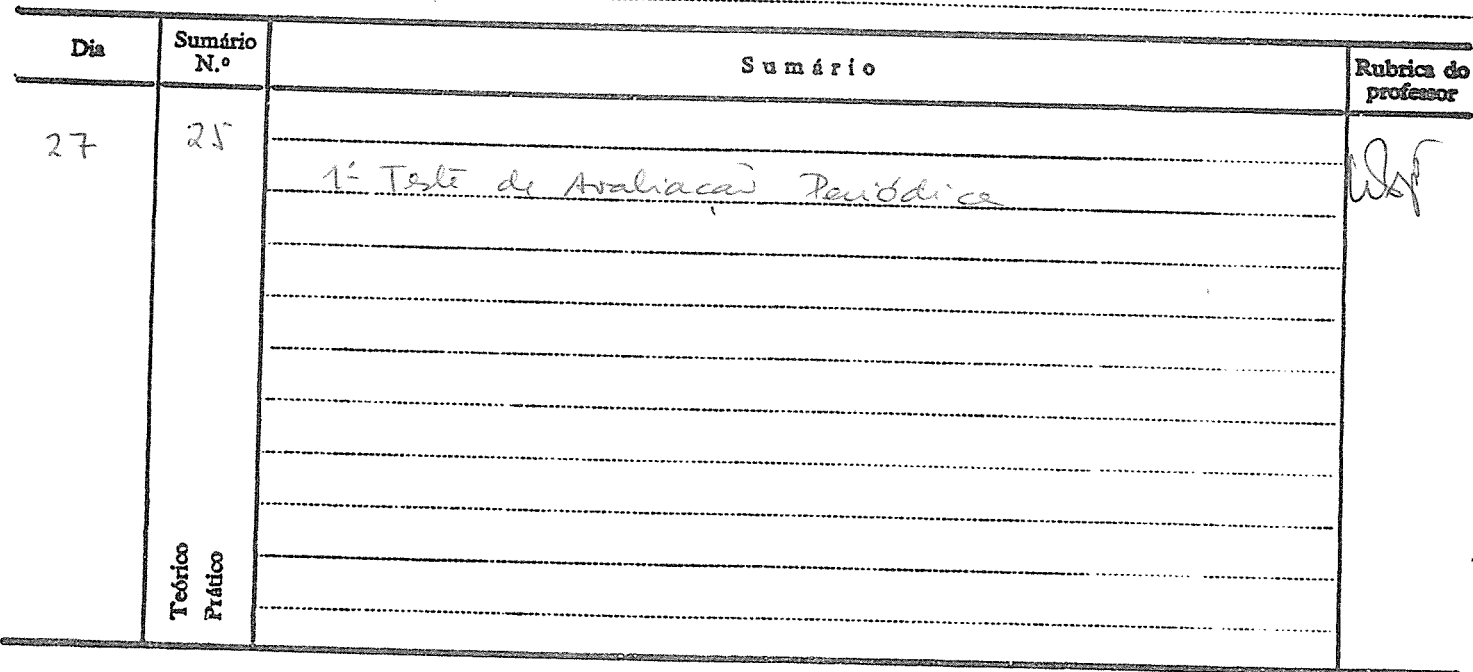 Dia
Sumário N.º
Sumário
Rubrica do professor
27
25
1º Teste de Avaliação Periódica
Teórico
Prático